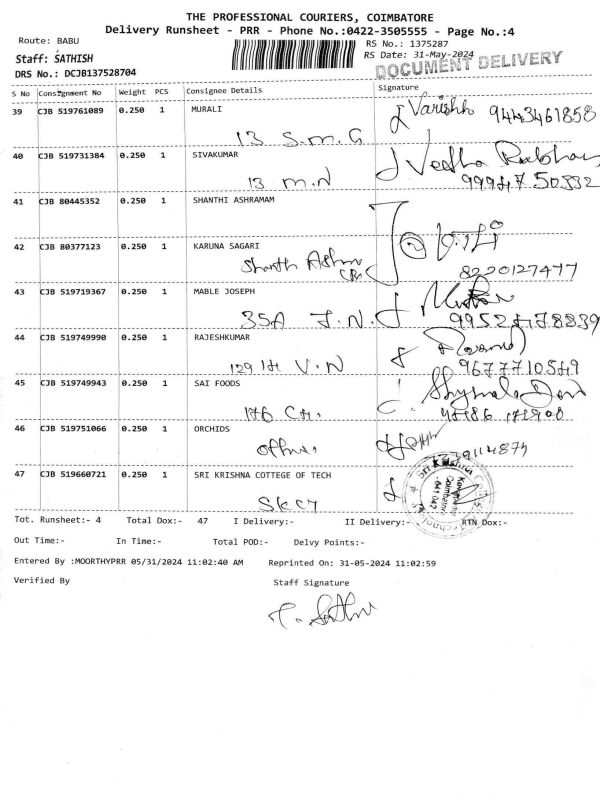 THE PROFESSIONAL COURIERS, COIMBATORE
Delivery Runsheet - PRR - Phone No.:0422-3505555 - Page No.:4
Route: BABU
RS No.: 1375287
Staff: SATHISH
RS Date: 31-May-2024
DRS No.: DCJB137528704
DOCUMENT DELIVERY
S No Consignment No Weight PCS Consignee Details Signature
39 CJB 519761089 0.250 1 MURALI Varishh 9443461858
13 S.M.G
40 CJB 519731384 0.250 1 SIVAKUMAR Vedha
13 M.N
41 CJB 80445352 0.250 1 SHANTHI ASHRAMAM
42 CJB 80377123 0.250 1 KARUNA SAGARI
Shanth Ashm 8220127477
43 CJB 519719367 0.250 1 MABLE JOSEPH
35A J.N.
44 CJB 519749990 0.250 1 RAJESHKUMAR
129 V.N 9677710549
45 CJB 519749943 0.250 1 SAI FOODS
176
46 CJB 519751066 0.250 1 ORCHIDS
47 CJB 519660721 0.250 1 SRI KRISHNA COTTEGE OF TECH
SKCT
Tot. Runsheet:- 4 Total Dox:- 47 I Delivery:- II Delivery:- RTN Dox:-
Out Time:- In Time:- Total POD:- Delvy Points:-
Entered By :MOORTHYPRR 05/31/2024 11:02:40 AM Reprinted On: 31-05-2024 11:02:59
Verified By Staff Signature